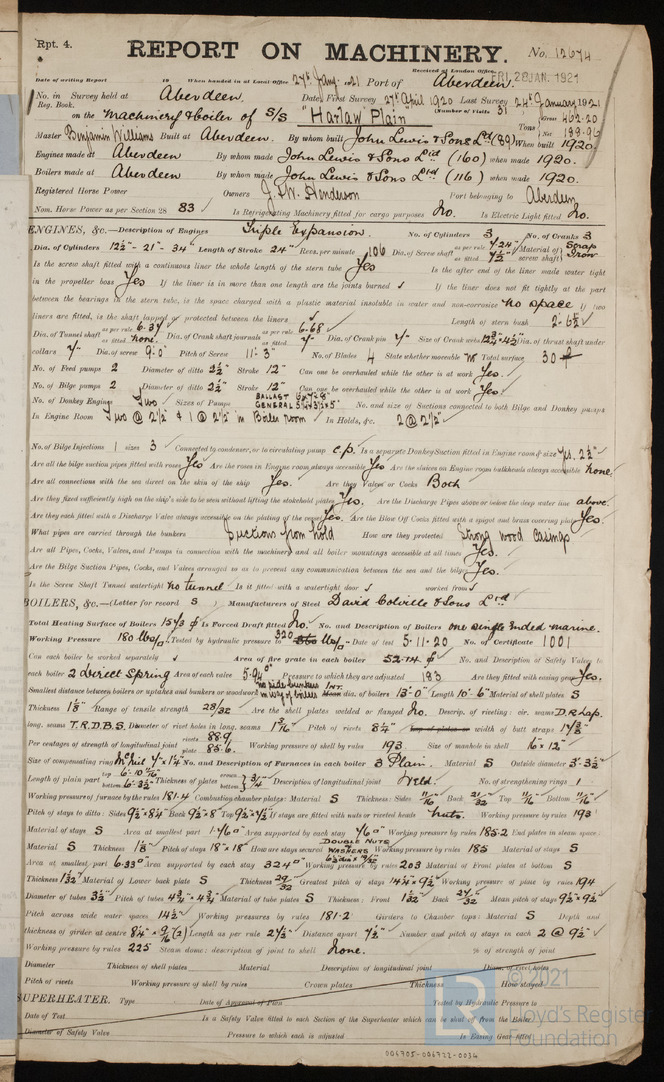 Rpt. 4.
REPORT ON MACHINERY.
No. 12674
Received at London Office FRI. 28 JAN. 1921
Date of writing Report 19 When handed in at Local Office 27th Jany. 1921 Port of Aberdeen.
No. in Survey held at Aberdeen. Date, First Survey 27th April 1920 Last Survey 24th January 1921
Reg. Book. (Number of Visits 31
on the Machinery & boiler of S/S "Harlaw Plain" Tons Gross 462.20 Net 189.96
Master Benjamin Williams Built at Aberdeen. By whom built John Lewis & Sons Ltd (89) When built 1920.
Engines made at Aberdeen By whom made John Lewis & Sons Ltd (160) when made 1920.
Boilers made at Aberdeen By whom made John Lewis & Sons Ltd (116) when made 1920.
Registered Horse Power Owners Henderson Port belonging to Aberdeen
Nom. Horse Power as per Section 28 83 Is Refrigerating Machinery fitted for cargo purposes No. Is Electric Light fitted No.
ENGINES, &c.—Description of Engines Triple Expansion. No. of Cylinders 3 No. of Cranks 3
Dia. of Cylinders 12½"- 21"- 34" Length of Stroke 24" Revs. per minute 106 Dia. of Screw shaft as per rule 7.24" as fitted 7½" Material of screw shaft Scrap Iron
Is the screw shaft fitted with a continuous liner the whole length of the stern tube Yes Is the after end of the liner made water tight
in the propeller boss Yes If the liner is in more than one length are the joints burned If the liner does not fit tightly at the part
between the bearings in the stern tube, is the space charged with a plastic material insoluble in water and non-corrosive No space If two
liners are fitted, is the shaft lapped or protected between the liners Length of stern bush 2'-6½"
Dia. of Tunnel shaft as per rule 6.34 as fitted none. Dia. of Crank shaft journals as per rule 6.68 as fitted 7" Dia. of Crank pin 7" Size of Crank webs Dia. of thrust shaft under
collars 7" Dia. of screw 9'-0" Pitch of Screw 11'-3" No. of Blades 4 State whether moveable No Total surface 30
No. of Feed pumps 2 Diameter of ditto 2½" Stroke 12" Can one be overhauled while the other is at work Yes.
No. of Bilge pumps 2 Diameter of ditto 2½" Stroke 12" Can one be overhauled while the other is at work Yes.
No. of Donkey Engines Two Sizes of Pumps BALLAST GENERAL No. and size of Suctions connected to both Bilge and Donkey pumps
In Engine Room Two @ 2½" & 1 @ 2½" in Boiler room In Holds, &c. 2 @ 2½"
No. of Bilge Injections 1 sizes 3 Connected to condenser, or to circulating pump C.P. Is a separate Donkey Suction fitted in Engine room & size Yes, 2½"
Are all the bilge suction pipes fitted with roses Yes Are the roses in Engine room always accessible Yes Are the sluices on Engine room bulkheads always accessible none.
Are all connections with the sea direct on the skin of the ship Yes. Are they Valves or Cocks Both
Are they fixed sufficiently high on the ship's side to be seen without lifting the stokehold plates Yes. Are the Discharge Pipes above or below the deep water line above.
Are they each fitted with a Discharge Valve always accessible on the plating of the vessel Yes. Are the Blow Off Cocks fitted with a spigot and brass covering plate Yes.
What pipes are carried through the bunkers Suctions from hold How are they protected Strong wood casings
Are all Pipes, Cocks, Valves, and Pumps in connection with the machinery and all boiler mountings accessible at all times Yes.
Are the Bilge Suction Pipes, Cocks, and Valves arranged so as to prevent any communication between the sea and the bilges Yes.
Is the Screw Shaft Tunnel watertight No tunnel Is it fitted with a watertight door worked from
BOILERS, &c.—(Letter for record S) Manufacturers of Steel David Colville & Sons Ltd
Total Heating Surface of Boilers 1573 Is Forced Draft fitted No. No. and Description of Boilers one single Ended marine.
Working Pressure 180 lbs/□" Tested by hydraulic pressure to 320 lbs/□" Date of test 5.11.20 No. of Certificate 1001
Can each boiler be worked separately Area of fire grate in each boiler 52.14 No. and Description of Safety Valves to
each boiler 2 Direct Spring Area of each valve 5.94 □" Pressure to which they are adjusted 183 Are they fitted with easing gear Yes.
Smallest distance between boilers or uptakes and bunkers or woodwork no side bunkers in way of boilers INT. dia. of boilers 13'-0" Length 10'-6" Material of shell plates S
Thickness 1⅛" Range of tensile strength 28/32 Are the shell plates welded or flanged No. Descrip. of riveting: cir. seams D.R. Lap.
long. seams T.R.D.B.S. Diameter of rivet holes in long. seams 1 3/16 Pitch of rivets 8¼" width of butt straps
Per centages of strength of longitudinal joint rivets 88.9 plate 85.6 Working pressure of shell by rules 193 Size of manhole in shell 16" x 12"
Size of compensating ring McNeil 7" x 1⅛" No. and Description of Furnaces in each boiler 3 Plain. Material S Outside diameter 3'-3½"
Length of plain part top bottom Thickness of plates crown bottom 3/4" Description of longitudinal joint Weld. No. of strengthening rings 1
Working pressure of furnace by the rules 181.4 Combustion chamber plates: Material S Thickness: Sides 11/16 Back 21/32 Top 11/16 Bottom 11/16
Pitch of stays to ditto: Sides 9½" x 8¼" Back 9½" x 8" Top 9½" x 7½" If stays are fitted with nuts or riveted heads Nuts. Working pressure by rules 193
Material of stays S Area at smallest part 1.76□" Area supported by each stay 76□" Working pressure by rules 185.2 End plates in steam space:
Material S Thickness 1⅛" Pitch of stays 18" x 18" How are stays secured DOUBLE NUTS WASHERS Working pressure by rules 185 Material of stays S
Area at smallest part 6.33□" Area supported by each stay 324□" Working pressure by rules 203 Material of Front plates at bottom S
Thickness 1 1/32 Material of Lower back plate S Thickness 29/32 Greatest pitch of stays 14¼ x 9½" Working pressure of plate by rules 194
Diameter of tubes 3½" Pitch of tubes 4¾ x 4¾" Material of tube plates S Thickness: Front 1 1/32 Back 27/32 Mean pitch of stays 9½ x 9½"
Pitch across wide water spaces 14½" Working pressures by rules 181.2 Girders to Chamber tops: Material S Depth and
thickness of girder at centre 8¼" x 9/16 (2) Length as per rule 27½" Distance apart 7½" Number and pitch of stays in each 2 @ 9½"
Working pressure by rules 225 Steam dome: description of joint to shell None. % of strength of joint
Diameter Thickness of shell plates Material Description of longitudinal joint Diam. of rivet holes
Pitch of rivets Working pressure of shell by rules Crown plates Thickness How stayed
SUPERHEATER. Type Date of Approval of Plan Tested by Hydraulic Pressure to
Date of Test Is a Safety Valve fitted to each Section of the Superheater which can be shut off from the Boiler
Diameter of Safety Valve Pressure to which each is adjusted Is Easing Gear fitted
© 2021
Lloyd's Register
Foundation
006705-006722-0034